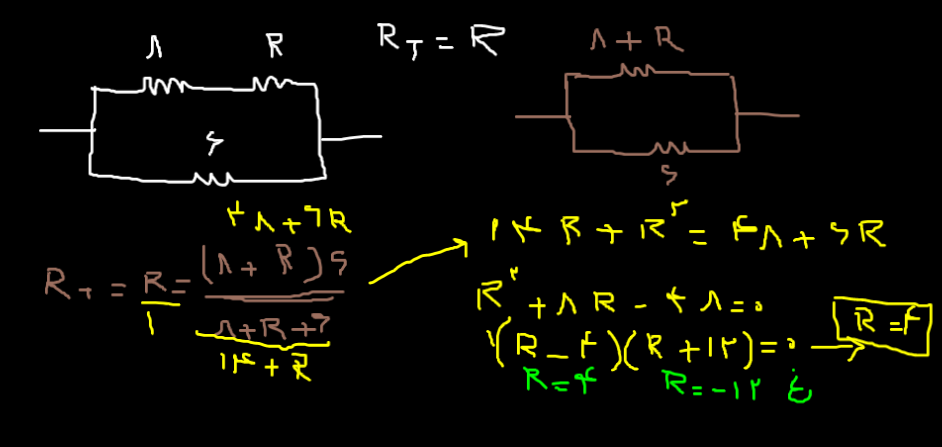 ۸ R
R_T = R
۸ + R
۶
۶
۴۸ + ۶R
R_T = R/۱ = (۸ + R)۶ / ۸ + R + ۶
۱۴ + R
۱۴R + R^۲ = ۴۸ + ۶R
R^۲ + ۸R - ۴۸ = ۰
(R - ۴)(R + ۱۲) = ۰ → R = ۴
R = ۴ R = -۱۲ غ